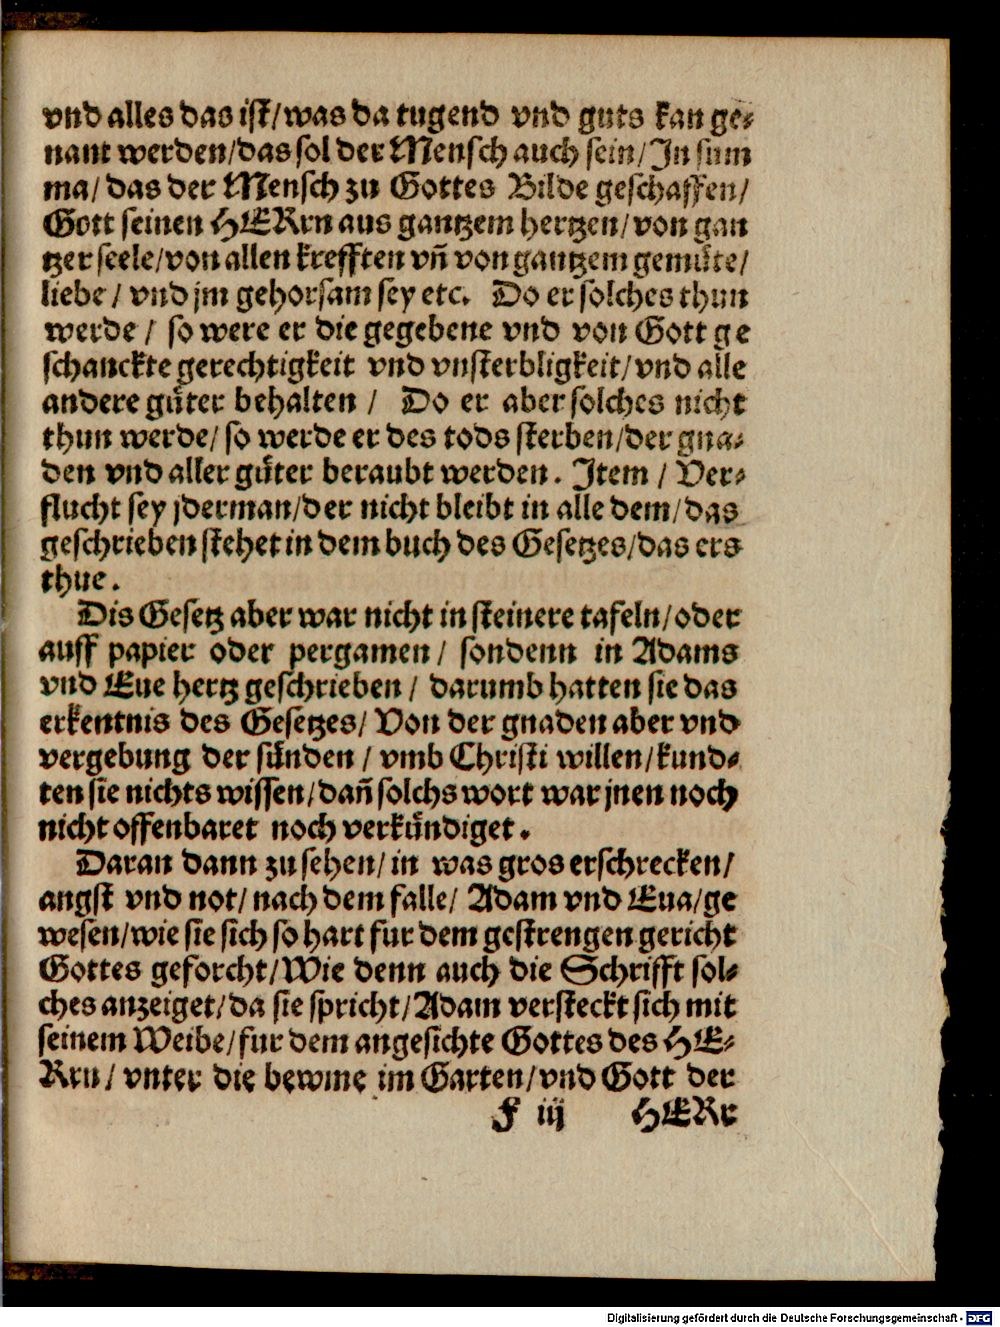 vnd alles das ist/was da tugend vnd guts kan ge-
nant werden/das sol der Mensch auch sein/In sum
ma/das der Mensch zu Gottes Bilde geschaffen/
Gott seinen HERrn aus gantzem hertzen/von gan
tzer seele/von allen krefften vñ von gantzem gemüte/
liebe/vnd jm gehorsam sey etc. Do er solches thun
werde/so were er die gegebene vnd von Gott ge
schanckte gerechtigkeit vnd vnsterbligkeit/vnd alle
andere güter behalten/Do er aber solches nicht
thun werde/so werde er des tods sterben/der gna-
den vnd aller güter beraubt werden. Item/Ver-
flucht sey jderman/der nicht bleibt in alle dem/das
geschrieben stehet in dem buch des Gesetzes/das ers
thue.
Dis Gesetz aber war nicht in steinere tafeln/oder
auff papier oder pergamen/sondenn in Adams
vnd Eue hertz geschrieben/darumb hatten sie das
erkentnis des Gesetzes/Von der gnaden aber vnd
vergebung der sünden/vmb Christi willen/kund-
ten sie nichts wissen/dañ solchs wort war jnen noch
nicht offenbaret noch verkündiget.
Daran dann zu sehen/in was gros erschrecken/
angst vnd not/nach dem falle/Adam vnd Eua/ge
wesen/wie sie sich so hart fur dem gestrengen gericht
Gottes geforcht/Wie denn auch die Schrifft sol-
ches anzeiget/da sie spricht/Adam versteckt sich mit
seinem Weibe/fur dem angesichte Gottes des HE-
Rrn/vnter die bewme im Garten/vnd Gott der
F iij HERr
Digitalisierung gefördert durch die Deutsche Forschungsgemeinschaft - DFG